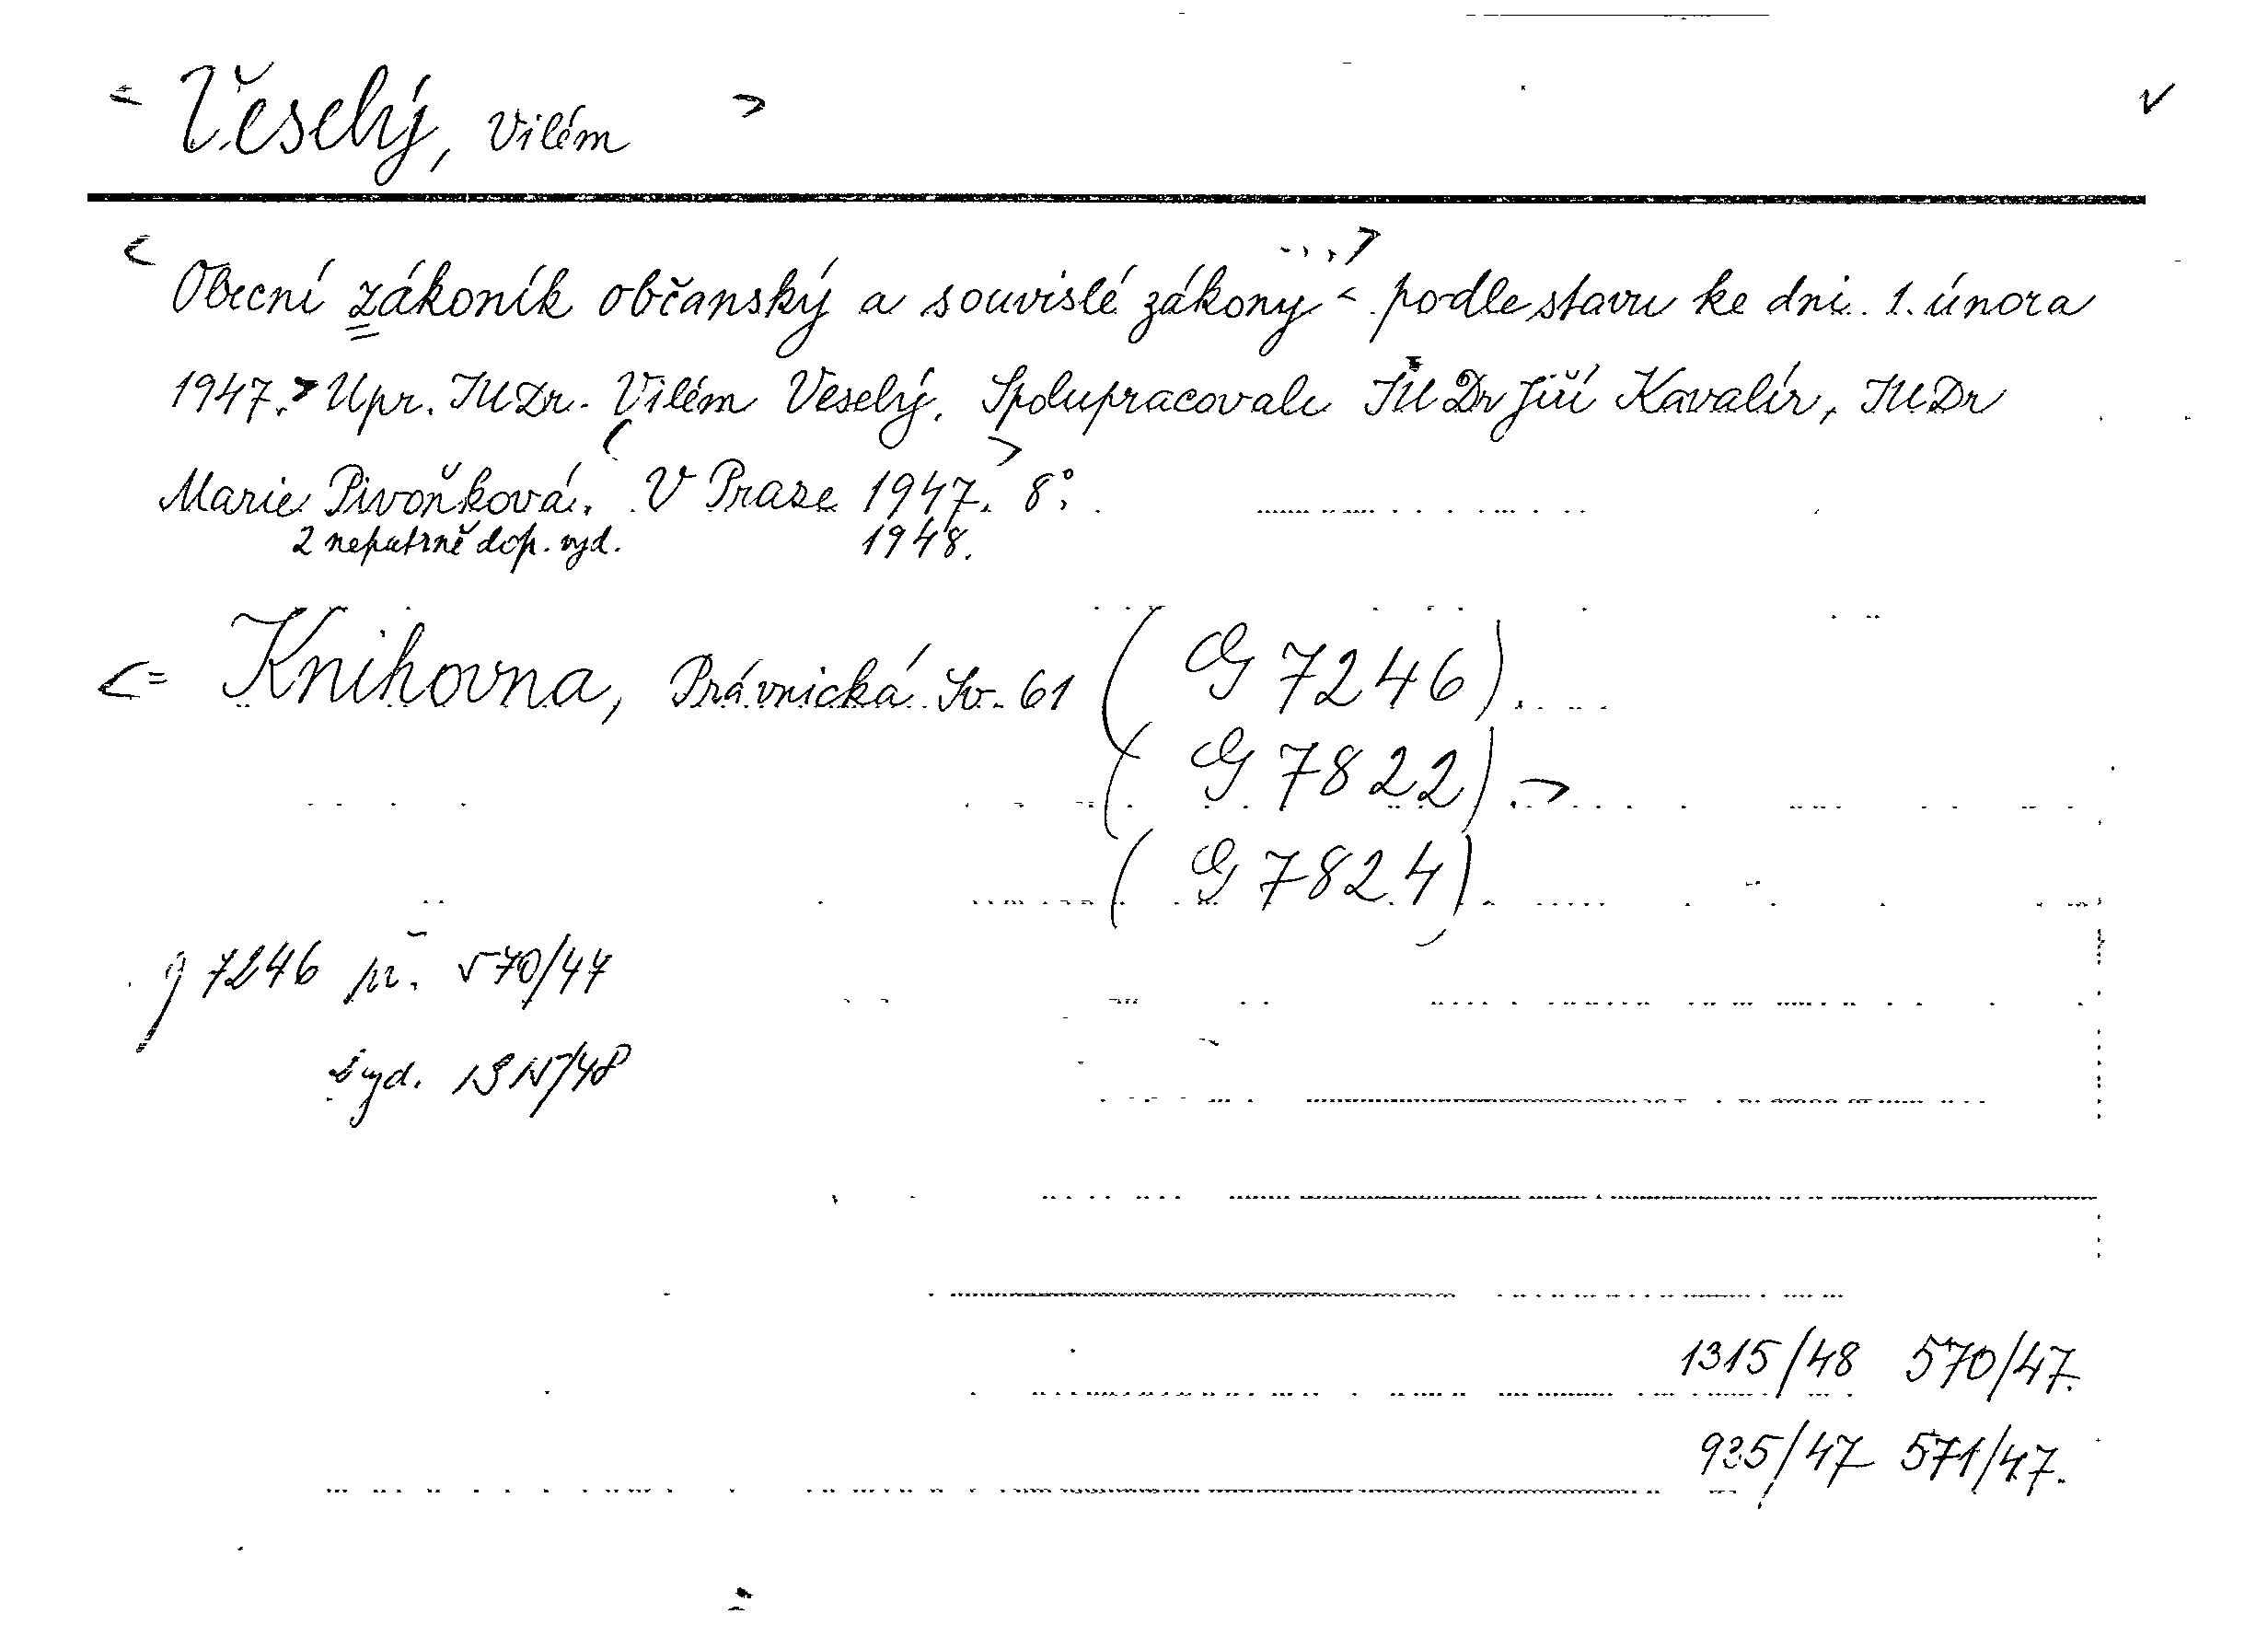 Veselý, Vilém
Obecní zákoník občanský a souvislé zákony podle stavu ke dni 1. února
1947. Upr. JUDr. Vilém Veselý. Spolupracovali JUDr Jiří Kavalír, JUDr
Marie Pivoňková. V Praze 1947. 8°.
2 nepatrně dop. vyd. 1948.
Knihovna, Právnická Sv. 61 (G 7246).
(G 7822).
(G 7824)
g 7246 př. 570/47
vyd. 1315/48
1315/48 570/47.
925/47 571/47.